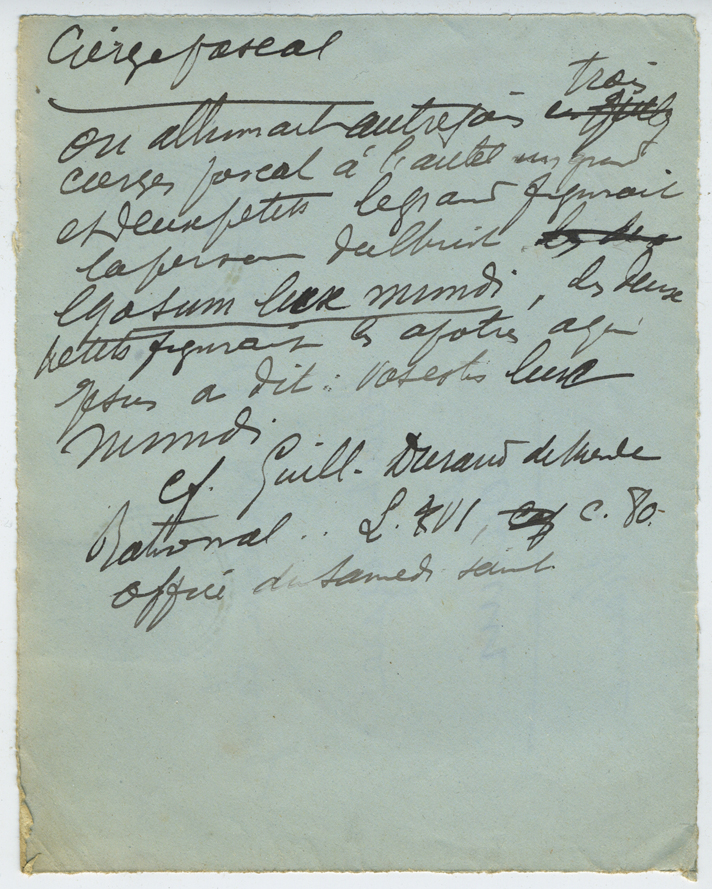 Cierge pascal
on allumait autrefois trois
cierges pascal à l'autel un grand
et deux petits le grand figurait
la personne du Christ
ego sum lux mundi, les deux
petits figurait les apotres a qui
Jésus a dit : vos estis lux
mundi
cf. Guill. Durand de Mende
Rational .. L. VI, c. 80.
office du samedi saint